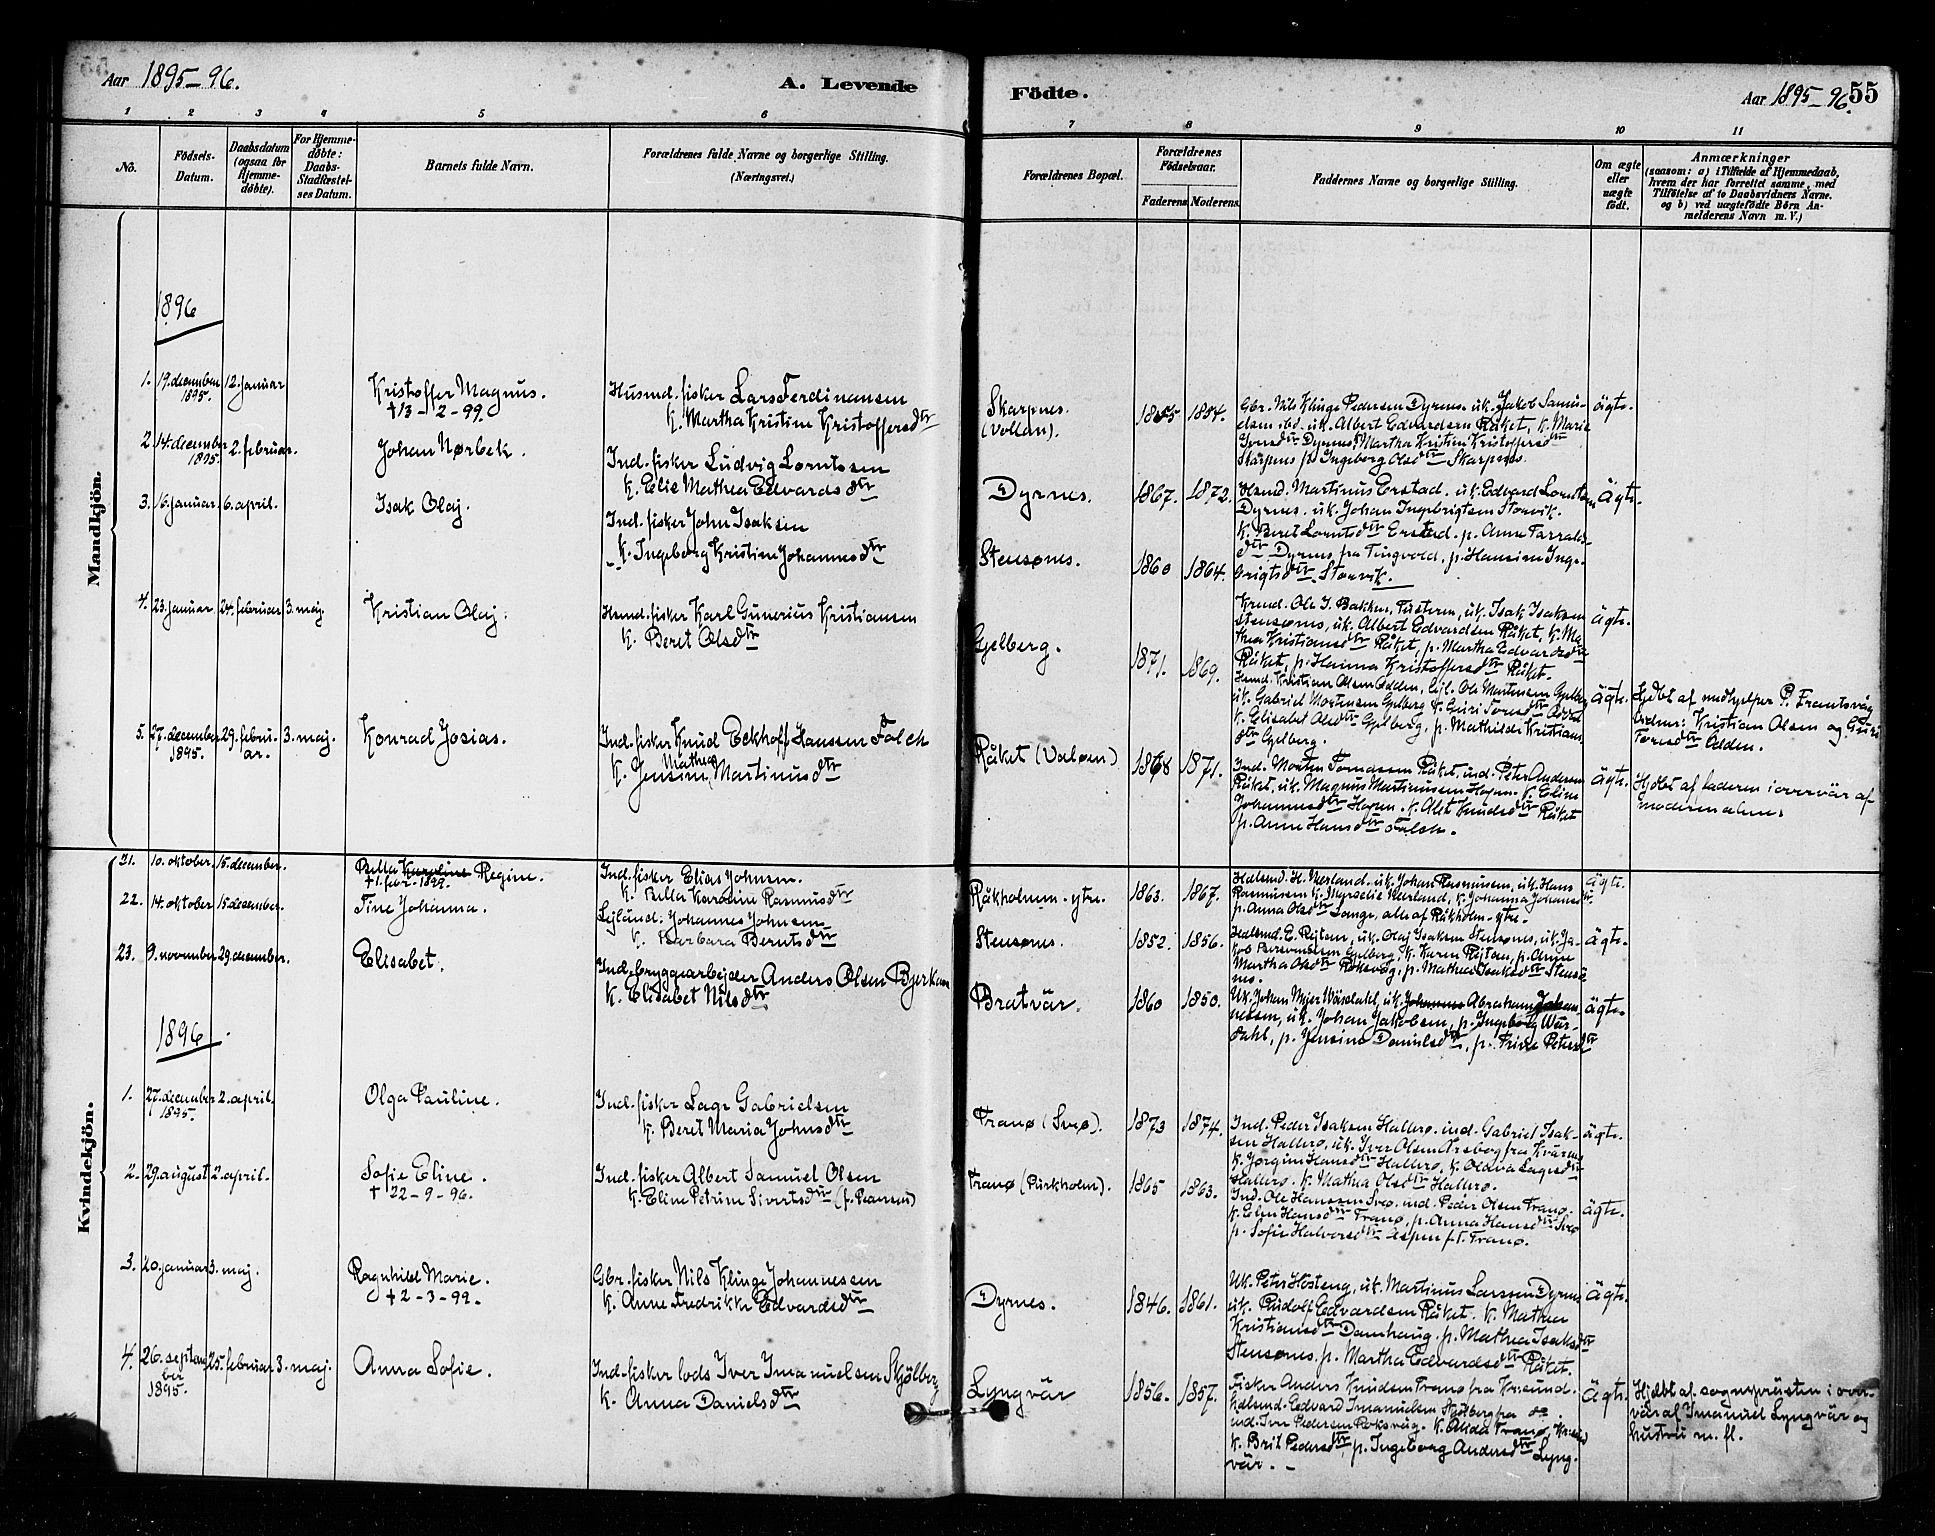 Aar 1895-96.
A. Levende
Födte.
Aar 1895-96. 55
1 2 3 4 5 6 7 8 9 10 11
No.
Födsels-
Datum.
Daabsdatum
(ogsaa for
Hjemme-
döbte).
For Hjemme-
døbte:
Daabs-
Stadfæstel-
ses Datum.
Barnets fulde Navn.
Forældrenes fulde Navne og borgerlige Stilling.
(Næringsvei.)
Forældrenes Bopæl.
Forældrenes
Födselsaar.
Faderens. Moderens.
Faddernes Navne og borgerlige Stilling.
Om ægte
eller
uægte
født.
Anmærkninger
(saasom: a) i Tilfælde af Hjemmedaab,
hvem der har forrettet samme, med
Tilföielse af to Daabsvidners Navne.
og b) ved uægtefödte Börn An-
melderens Navn m. V.)
Mandkjön.
1896
1. 19. december 1895. 12. januar
Kristoffer Magnus.
+13-2-99.
Husmd. fisker Lars Ferdinansen
K. Martha Kristine Kristoffersdtr
Skarpnes.
(Vollan).
1855 1854.
Gbr. Nils Klinge Pedersen Dyrnes. uk. Jakob Samu-
elsen ibd. uk. Albert Edvardsen Råket, K. Marie
Iversdtr Dyrnes, Martha Kristine Kristoffersdtr
Skarpnes p. Ingeborg Olsdtr Skarpnes.
ägte.
2. 14. december 1895. 2. februar.
Johan Nørbek.
Ind. fisker Ludvig Lorntsen
K. Elie Mathea Edvardsdtr
Dyrnes.
1867. 1872.
Husmd. Martinus Erstad. uk. Edvard Lorntsen
Dyrnes. uk. Johan Ingebrigtsen Storvik.
K. Beret Lorntsdtr Erstad. p. Anne Tarralds-
dtr Dyrnes fra Tingvold, p. Hansine Inge-
brigtsdtr Storvik.
ägte.
3. 16. januar. 6. april.
Isak Olaj.
Ind. fisker John Isaksen
K. Ingeborg Kristine Johannesdtr
Stensønes.
1860 1864.
Ole I. Bakken, Tusteren, uk. Isak Isaksen
Stensønes, uk. Albert Edvardsen Råket, K. Ma-
thea Kristiansdtr Råket, p. Martha Edvardsdtr
Råket, p. Hanna Kristoffersdtr Råket.
ägte.
4. 23. januar. 24. februar 3. maj
Kristian Olaj.
Husmd. fisker Karl Gunerius Kristiansen
K. Beret Olsdtr
Gjelberg.
1871. 1869.
Husmd. Kristian Olsen Odden, Ole Mortensen Gjelberg
uk. Gabriel Mortensen Gjelberg K. Guri Toresdtr Odden
K. Elisabet Olsdtr Gjelberg, p. Mathilde Kristians-
dtr Gjelberg.
ägte.
Hjdbt af medhjelper P. Frantsvåg
Vidner: Kristian Olsen og Guri
Toresdtr Odden.
5. 27. december 1895. 29. febru-
ar. 3. maj.
Konrad Josias.
Ind. fisker Knud Eckhoff Hanssen Falch
K. Jensine Mathea Martinusdtr
Råket (Valøen)
1868 1871.
Ind. Morten Råket, ind. Peter Andersen
Råket, uk. Magnus Martinussen Hopen. K. Eline
Johannesdtr Hopen. K. Alet Knudsdtr Råket
p. Anne Hansdtr Falch.
ägte.
Hjdbt af faderen i overvär af
moderen alene.
Kvindekjön.
21. 10. oktober. 15. december.
Bella Karoline Regine.
+1. febr. 1899.
Ind. fisker Elias Johnsen.
K. Bella Karoline Rasmusdtr
Råkholmen-ytre.
1863. 1867.
H. Merland. uk. Johan Rasmussen, uk. Hans
Rasmussen K. Merland, K. Johanna Johansdtr
p. Anna Olsdtr Lange, alle af Råkholm-ytre.
ägte.
22. 14. oktober 15 december.
Tine Johanna.
Johannes Johnsen
K. Barbara Berntsdtr
Stensønes.
1852. 1856.
E. Rejten, uk. Olaj Isaksen Stensønes, uk. Ja-
kob Gjelberg, K. Karen Rejtan, p. Anne
Martha Olsdtr Roksvåg, p. Mathea Isaksdtr Stensø-
nes.
ägte.
23. 9. november 29. december.
Elisabet.
Ind. bryggearbejder Anders Olsen Bjerkan
K. Elisabet Nilsdtr
Bratvär.
1860 1850.
Uk. Johan Mejer uk. Johannes Abraham Johan-
nessen, uk. Johan Jakobsen, p. Ingeborg Wär-
dahl, p. Jensine Danielsdtr, p. Trine Petersdtr
ägte.
1896
1. 27. december 1895. 2. april.
Olga Pauline.
Ind. fisker Lage Gabrielsen
K. Beret Maria Johnsdtr
Tranø (Sveø).
1873 1874.
Ind. Peder Isaksen Hallerø. ind. Gabriel Isak-
sen Hallerø, uk. Iver Olsen Aresbog fra Kvärnes
K. Jorgine Hansdtr Hallerø, K. Olava Lagesdtr
Hallerø. K. Mathea Olsdtr Hallerø.
ägte.
2. 29. august 2. april.
Sofie Eline.
+ 22-9-96.
Ind. fisker Albert Samuel Olsen
K. Eline Petrine Sivertsdtr
Tranø (Purkholm).
1865 1863.
Ind. Ole Hanssen Sveø. ind. Peder Olsen Tranø.
K. Elen Hansdtr Tranø, p. Anna Hansdtr Sveø
p. Sofie Halvorsdtr Aspen f. t. Tranø.
ägte.
3. 20. januar 3. maj.
Ragnhild Marie.
+ 2-3-99.
Gbr. fisker Nils Klinge Johannessen
K. Anne Fredrikke Edvardsdtr
Dyrnes.
1846. 1861.
Uk. Peter Hosteng, uk. Martinus Larssen Dyrnes
uk. Rudolf Edvardsen Råket. K. Mathea
Kristiansdtr Damhaug. p. Mathea Isaksdtr
Stensønes. p. Martha Edvardsdtr Råket.
ägte.
4. 26. septem-
ber 1895. 25. februar 3. maj.
Anna Sofie.
Ind. fisker lods Iver Imanuelsen Skjølberg
K. Anna Danielsdtr
Lyngvär
1856. 1857.
Fisker Anders Knudsen Tranø fra Krsund.
Edvard Imanuelsen Skjølberg fra do.
ind. Iver Pedersen Roksvåg. K. Anna Tranø, Krsund
K. Brit Pedersdtr, p. Ingeborg Andersdtr Lyng-
vär.
ägte.
Hjdbt af sogneprästen i over-
vär af Imanuel Lyngvär og
hustru m. fl.